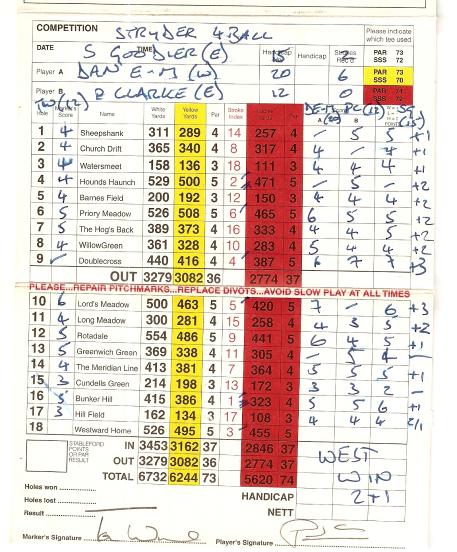 COMPETITION STRYDER 4 BALL
Please indicate which tee used
DATE S GOODLIER (E) TIME Handicap 15 Handicap Strokes Rec'd
PAR 73 SSS 72
Player A DAN E-M (W) 20 6
PAR 73 SSS 70
Player B P CLARKE (E) 12 0
PAR 74 SSS 72
Hole Marker's Score Name White Yards Yellow Yards Par Stroke Index Par A B
1 4 Sheepshank 311 289 4 14 257 4 - 5 5 +1
2 4 Church Drift 365 340 4 8 317 4 4 - 4 +1
3 4 Watersmeet 158 136 3 18 111 3 4 4 4 +1
4 4 Hounds Haunch 529 500 5 2 471 5 - 5 - +2
5 4 Barnes Field 200 192 3 12 150 3 4 4 4 +2
6 5 Priory Meadow 526 508 5 6 465 5 6 5 5 +2
7 5 The Hog's Back 389 373 4 16 333 4 4 4 5 +2
8 4 WillowGreen 361 328 4 10 283 4 5 4 4 +2
9 - Doublecross 440 416 4 4 387 5 6 7 7 +3
OUT 3279 3082 36 2774 37
PLEASE...REPAIR PITCHMARKS...REPLACE DIVOTS...AVOID SLOW PLAY AT ALL TIMES
10 6 Lord's Meadow 500 463 5 5 420 5 7 - 6 +3
11 4 Long Meadow 300 281 4 15 258 4 4 3 5 +2
12 5 Rotadale 554 486 5 9 441 5 6 4 5 +1
13 5 Greenwich Green 369 338 4 11 305 4 - 5 4 -
14 4 The Meridian Line 413 381 4 7 364 4 5 5 5 +1
15 3 Cundells Green 214 198 3 13 172 3 3 3 2 -
16 5 Bunker Hill 415 386 4 1 323 4 5 5 6 +1
17 3 Hill Field 162 134 3 17 108 3 4 4 4 2/1
18 Westward Home 526 495 5 3 455 5
STABLEFORD POINTS OR PAR RESULT
IN 3453 3162 37 2846 37
OUT 3279 3082 36 2774 37
TOTAL 6732 6244 73 5620 74
WEST
WIN
2+1
Holes won
Holes lost
HANDICAP
Result
NETT
Marker's Signature
Player's Signature